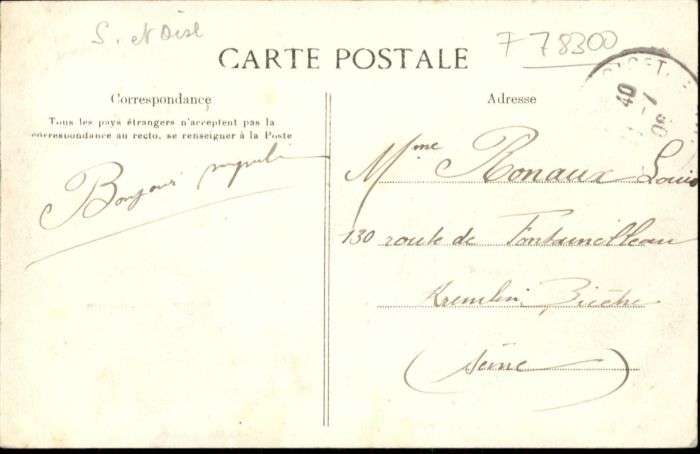 S. et Oise
F 78300
CARTE POSTALE
Correspondance
Tous les pays étrangers n'acceptent pas la
correspondance au recto, se renseigner à la Poste
Bonjour
Adresse
Mme Ronaux Louis
130 route de Fontainebleau
Kremlin Bicêtre
(Seine)
40